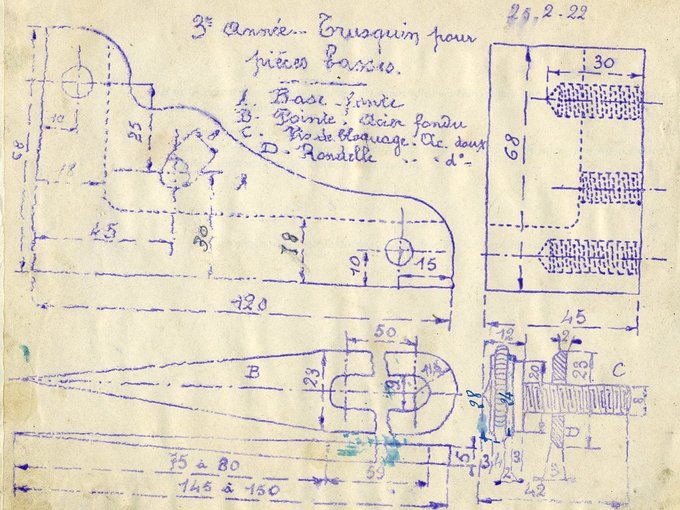 3e Année - Trusquin pour
pièces basses.
25.2-22
A - Base - fonte
B - Pointe : Acier fondu
C - Vis de blocage - Ac. doux
D - Rondelle " - d°-
10
68
18
25
45
30
18
10
15
120
30
68
45
50
B
23
19
75 à 80
59
145 à 150
5
12
2
C
20
23
28
24
8
D
3
4
2
3
3
42